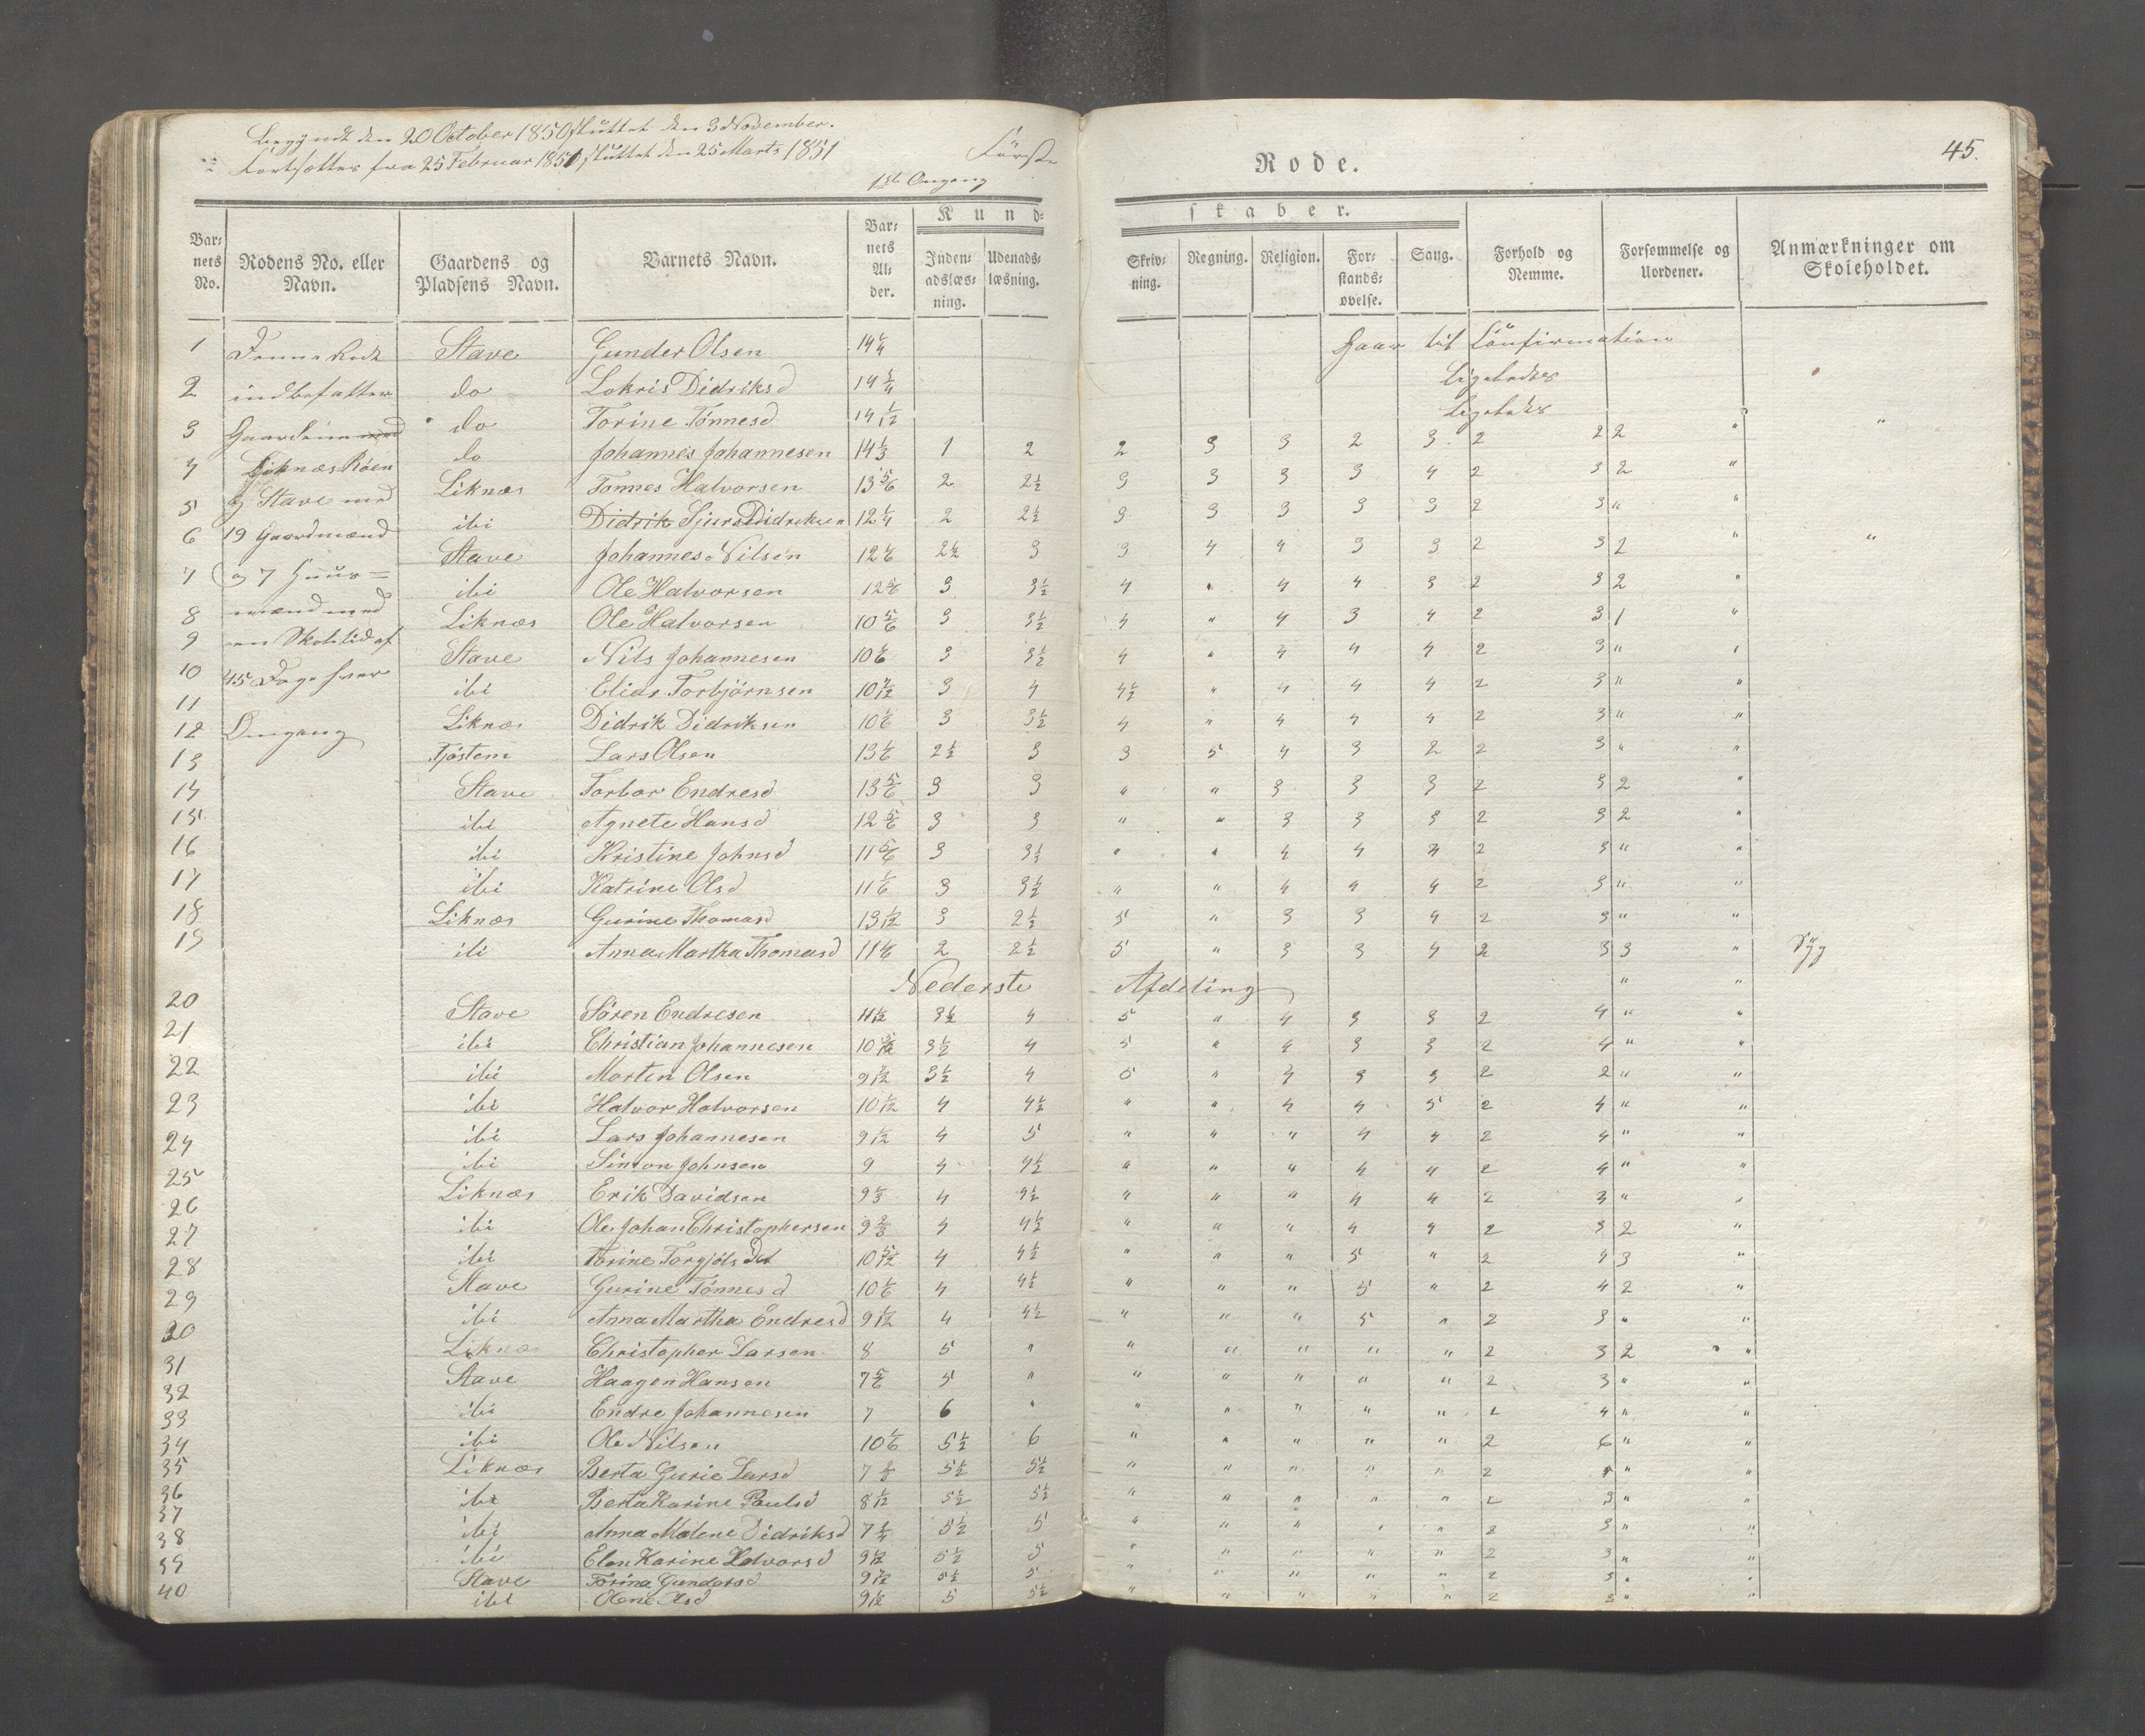 Begyndt den 20 October 1850 sluttet den 3 November.
Fortsættes fra 25 Februar 1851 sluttet den 25 Marts 1851
1ste Omgang
Første Rode. 45.
Kundskaber.
Barnets No. Rodens No. eller Navn. Gaardens og Pladsens Navn. Barnets Navn. Barnets Alder. Indenadslæsning. Udenadslæsning. Skrivning. Regning. Religion. Forstandsøvelse. Sang. Forhold og Nemme. Forsømmelse og Uordener. Anmærkninger om Skoleholdet.
1 Denne Rode Stave Gunder Olsen 14 Gaar til Confirmation
2 indbefatter do Lokris Didriksd 14 Ligeledes
3 Gaardene med do Torine Tønnesd 14 1/12 Ligeledes
4 Liknæs Røen do Johannes Johannesen 14 1/3 1 2 2 3 3 2 3 2 2 2 "
5 og Stave med Liknæs Tønnes Halvorsen 13 5/6 2 2 1/2 3 3 3 3 4 2 3 2 "
6 19 Gaardmænd ibi Didrik Sjurs Didriksen 12 1/4 2 2 1/2 3 3 3 3 3 2 3 " "
7 og 7 Huus= Stave Johannes Nilsen 12 1/6 2 1/2 3 3 4 4 3 3 2 3 2 " "
8 mænd med ibi Ole Halvorsen 12 5/6 3 3 1/2 4 " 4 4 3 2 3 2 "
9 en Skoletid af Liknæs Ole Halvorsen 10 5/6 3 3 1/2 4 " 4 3 4 2 3 1 "
10 45 Dage hver Stave Nils Johannesen 10 1/6 3 3 1/2 4 " 4 4 4 2 3 " "
11 ibi Elias Torbjørnsen 10 7/12 3 4 4 1/2 " 4 4 4 2 3 " "
12 Omgang Liknæs Didrik Didriksen 10 1/6 3 3 1/2 4 " 4 4 4 2 3 " "
13 Tjøstem Lars Olsen 13 1/6 2 1/2 3 3 5 4 3 2 2 3 " "
14 Stave Torbor Endresd 13 5/6 3 3 " " 3 3 3 2 3 2 "
15 ibi Agnete Hansd 12 5/6 3 3 " " 3 3 3 2 3 2 "
16 ibi Kristine Johnsd 11 5/6 3 3 1/2 " " 4 4 4 2 3 " "
17 ibi Katrine Olsd 11 1/6 3 3 1/2 " " 4 4 4 2 3 " "
18 Liknæs Gurine Thomasd 13 1/12 3 2 1/2 5 " 3 3 4 2 3 " "
19 ibi Anna Martha Thomasd 11 1/6 2 2 1/2 5 " 3 3 4 2 3 3 " Syg
Nederste Afdeling " "
20 Stave Søren Endresen 11 1/12 3 1/2 4 5 " 4 3 3 2 4 " "
21 ibi Christian Johannesen 10 3 1/2 4 5 " 4 3 3 2 4 " "
22 ibi Morten Olsen 9 7/12 3 1/2 4 5 " 4 3 3 2 2 " "
23 ibi Halvor Halvorsen 10 1/12 4 4 1/2 " " 4 4 5 2 4 " "
24 ibi Lars Johannesen 9 1/12 4 5 " " " 4 4 2 4 " "
25 ibi Simon Johnsen 9 4 4 1/2 " " " 4 4 2 4 " "
26 Liknæs Erik Davidsen 9 1/3 4 4 1/2 " " " 4 4 2 3 " "
27 ibi Ole Johan Christophersen 9 2/3 4 4 1/2 " " " 4 4 2 3 2 "
28 ibi Torine Torgjøls Dat 10 5/12 4 4 1/2 " " " 5 " 2 4 3 "
29 Stave Gurine Tønnesd 10 1/6 4 4 1/2 " " " 5 " 2 4 2 "
30 ibi Anna Martha Endresd 9 1/12 4 4 1/2 " " " 5 " 2 3 " "
31 Liknæs Christopher Larsen 8 5 " " " " " " 2 3 2 "
32 Stave Haagen Hansen 7 5/6 5 " " " " " " 2 3 " "
33 ibi Endre Johannesen 7 6 " " " " " " 2 4 " "
34 ibi Ole Nilsen 10 1/6 5 1/2 6 " " " " " 2 6 " "
35 Liknæs Berta Gurie Larsd 7 2/3 5 1/2 5 1/2 " " " " " 2 4 " "
36 ibi Berta Karine Paulsd 8 1/12 5 1/2 5 1/2 " " " " " 2 3 " "
37 ibi Anna Malene Didriksd 7 3/4 5 1/2 5 " " " " " 2 3 " "
38 ibi Elen Karine Halvorsd 9 1/12 5 1/2 5 " " " " " 2 3 " "
39 Stave Torine Gundersd 9 5 1/2 5 " " " " " 2 3 " "
40 ibi Olene Olsd 9 5 5 1/2 " " " " " 2 3 " "